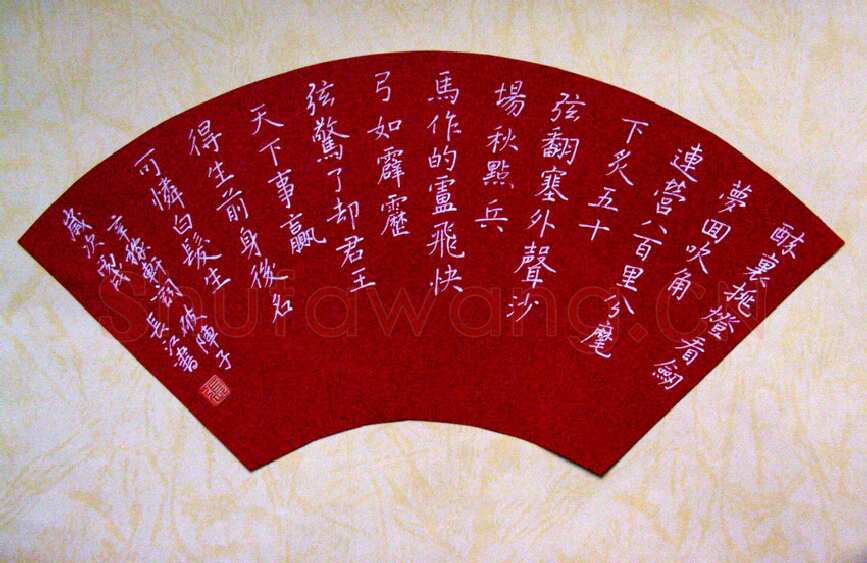 醉裏挑燈看劍
夢回吹角
連營八百里分麾
下炙五十
弦翻塞外聲沙
場秋點兵
馬作的盧飛快
弓如霹靂
弦驚了却君王
天下事贏
得生前身後名
可憐白髮生
辛稼軒詞破陣子
歲次 長江書
Shufawang.CN